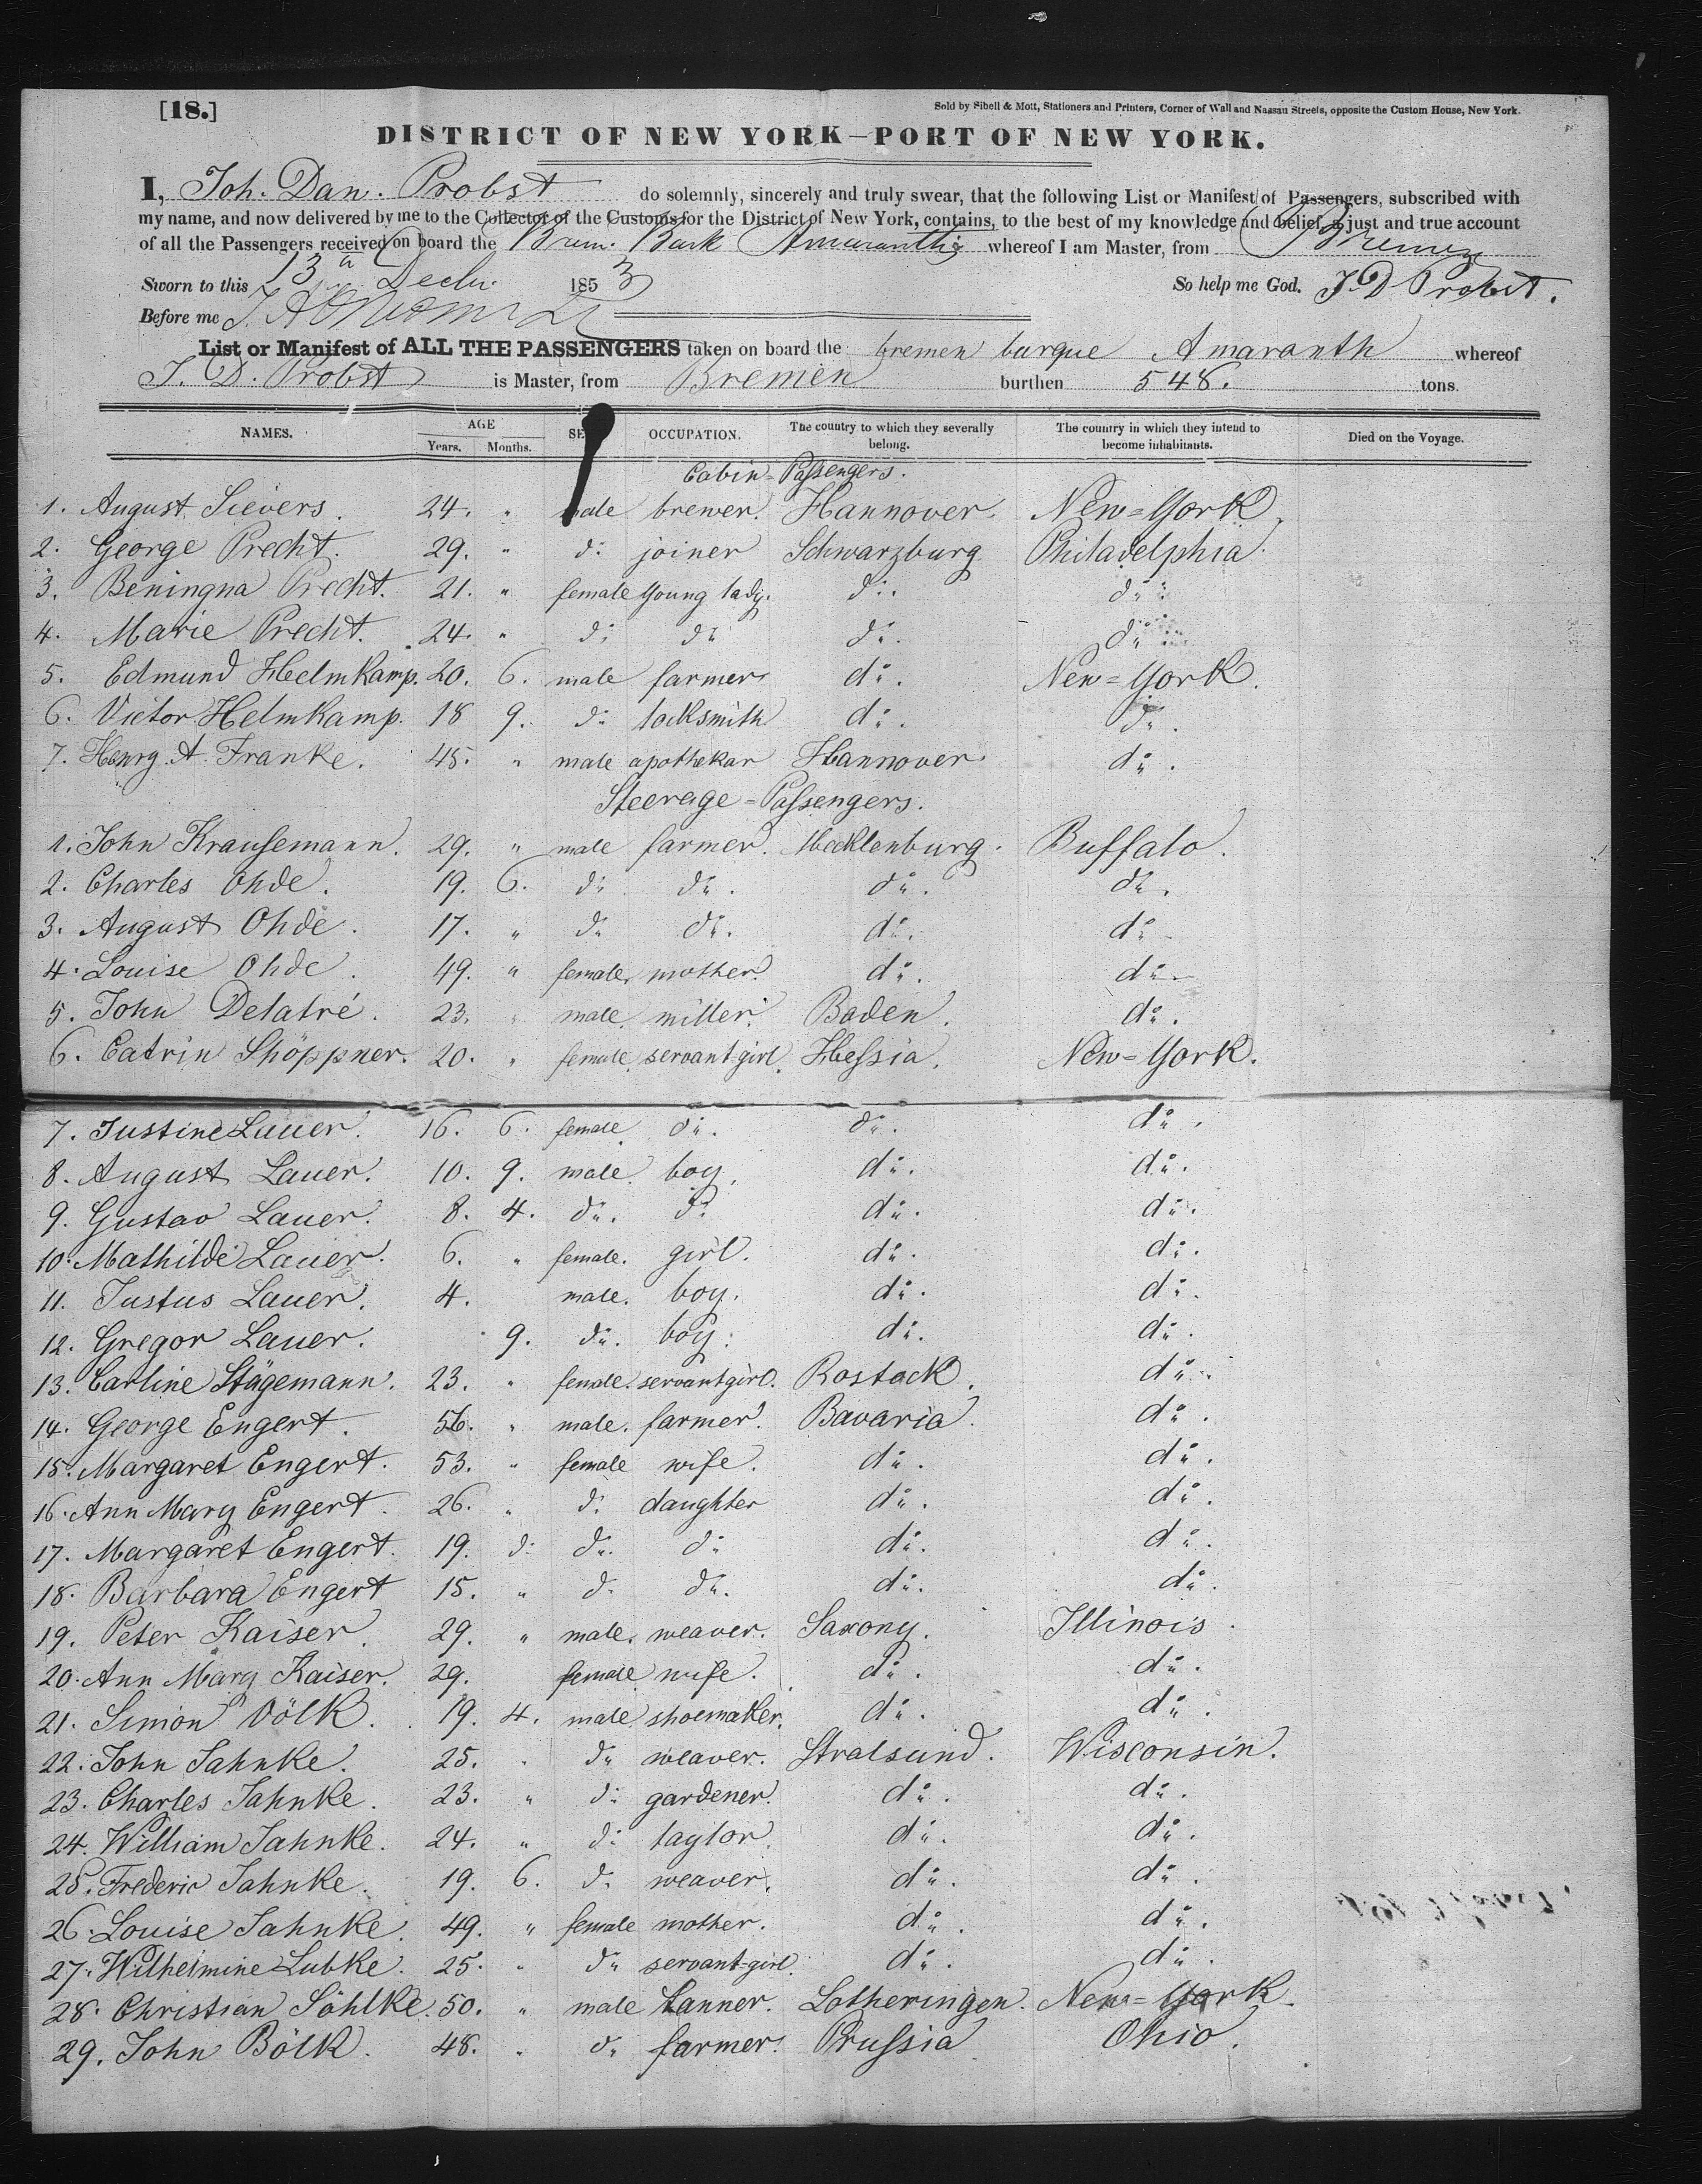 [18.]
Sold by Sibell & Mott, Stationers and Printers, Corner of Wall and Nassau Streets, opposite the Custom House, New York.
DISTRICT OF NEW YORK—PORT OF NEW YORK.
I, Joh. Dan. Probst do solemnly, sincerely and truly swear, that the following List or Manifest of Passengers, subscribed with
my name, and now delivered by me to the Collector of the Customs for the District of New York, contains, to the best of my knowledge and belief, a just and true account
of all the Passengers received on board the Brem. Bark Amaranth whereof I am Master, from Bremen
Sworn to this 13 Decbr. 1853 So help me God. J. D Probst.
Before me
List or Manifest of ALL THE PASSENGERS taken on board the bremen barque Amaranth whereof
J. D. Probst is Master, from Bremen burthen 548. tons.
NAMES. AGE Years. Months. SE OCCUPATION. The country to which they severally belong. The country in which they intend to become inhabitants. Died on the Voyage.
Cabin-Passengers.
1. August Sievers. 24. " male brewer. Hannover. New=York.
2. George Precht. 29. " do joiner Schwarzburg Philadelphia.
3. Beningna Precht. 21. " female young lady. do. do
4. Marie Precht. 24. " do do do. do
5. Edmund Helmkamp. 20. 6. male farmer do. New=York.
6. Victor Helmkamp. 18 9. do locksmith do. do.
7. Henry. A. Franke. 45. " male apothekar Hannover. do.
Steerage=Passengers.
1. John Krausemann. 29. " male farmer. Mecklenburg. Buffalo.
2. Charles Ohde. 19. 6. do do. do. do.
3. August Ohde. 17. " do do. do. do
4. Louise Ohde. 49. " female. mother. do. do
5. John Delatré. 23. " male. miller. Baden. do.
6. Catrin Shöppner. 20. " female. servant-girl. Hessia. New=York.
7. Justine Lauer. 16. 6. female. do. do. do.
8. August Lauer. 10. 9. male. boy. do. do.
9. Gustav Lauer. 8. 4. do. do do. do.
10. Mathilde Lauer. 6. " female. girl. do. do.
11. Justus Lauer. 4. male. boy. do. do.
12. Gregor Lauer. 9. do. boy. do. do.
13. Carline Stägemann. 23. " female. servantgirl. Rostock. do.
14. George Engert. 56. " male. farmer. Bavaria. do.
15. Margaret Engert. 53. " female wife. do. do.
16. Ann Mary Engert. 26. " do daughter do. do.
17. Margaret Engert. 19. do do. do do. do.
18. Barbara Engert 15. " do do. do. do.
19. Peter Kaiser. 29. " male. weaver. Saxony. Illinois.
20. Ann Mary Kaiser. 29. female wife. do. do.
21. Simon Völk. 19. 4. male shoemaker. do. do.
22. John Jahnke. 25. " do weaver. Stralsund. Wisconsin.
23. Charles Jahnke. 23. " do gardener. do. do.
24. William Jahnke. 24. " do taylor. do. do.
25. Frederic Jahnke. 19. 6. do weaver. do. do.
26. Louise Jahnke. 49. " female mother. do. do.
27. Wilhelmine Lubke. 25. " do servant=girl. do. do.
28. Christian Söhlke. 50. " male tanner. Lotheringen. New=York.
29. John Bölk. 48. " do farmer. Prussia Ohio.